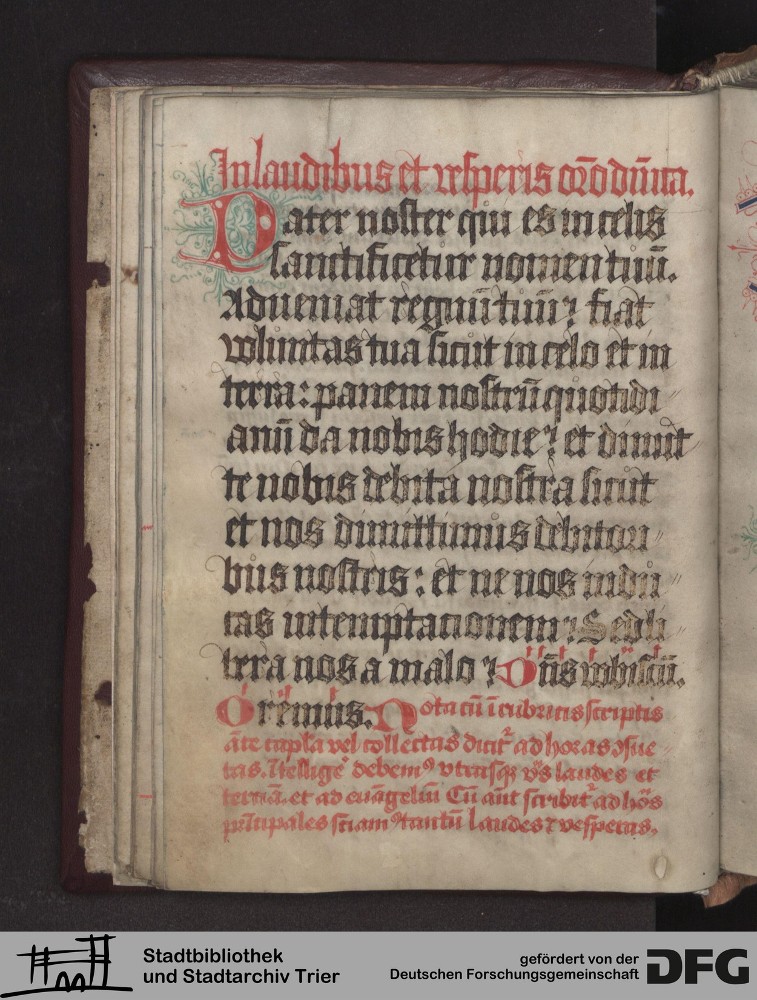 In laudibus et vesperis or̄o dn̄ica.
Pater noster qui es in celis
sanctificetur nomen tuū.
Adueniat regnū tuū? fiat
voluntas tua sicut in celo et in
terra: panem nostrū quotidi〃
anū da nobis hodie? et dimit
te nobis debita nostra sicut
et nos dimittimus debitori〃
bus nostris: et ne nos indu〃
cas in temptacionem? Sed li〃
bera nos a malo? Dn̄s vobiscū.
Oremus. Nota cū ī rubricis scriptis
an̄te cap̄la vel collectas dicit̄ ad horas ꝯsue〃
tas. Ītellige debemꝰ vtrasqꝫ vs̄ laudes et
terciā. et ad euāgeliū Cū aūt scribit̄ ad hōs
prīcipales sciamꝰ tantū laudes ⁊ vesperas.
Stadtbibliothek
und Stadtarchiv Trier
gefördert von der
Deutschen Forschungsgemeinschaft
DFG